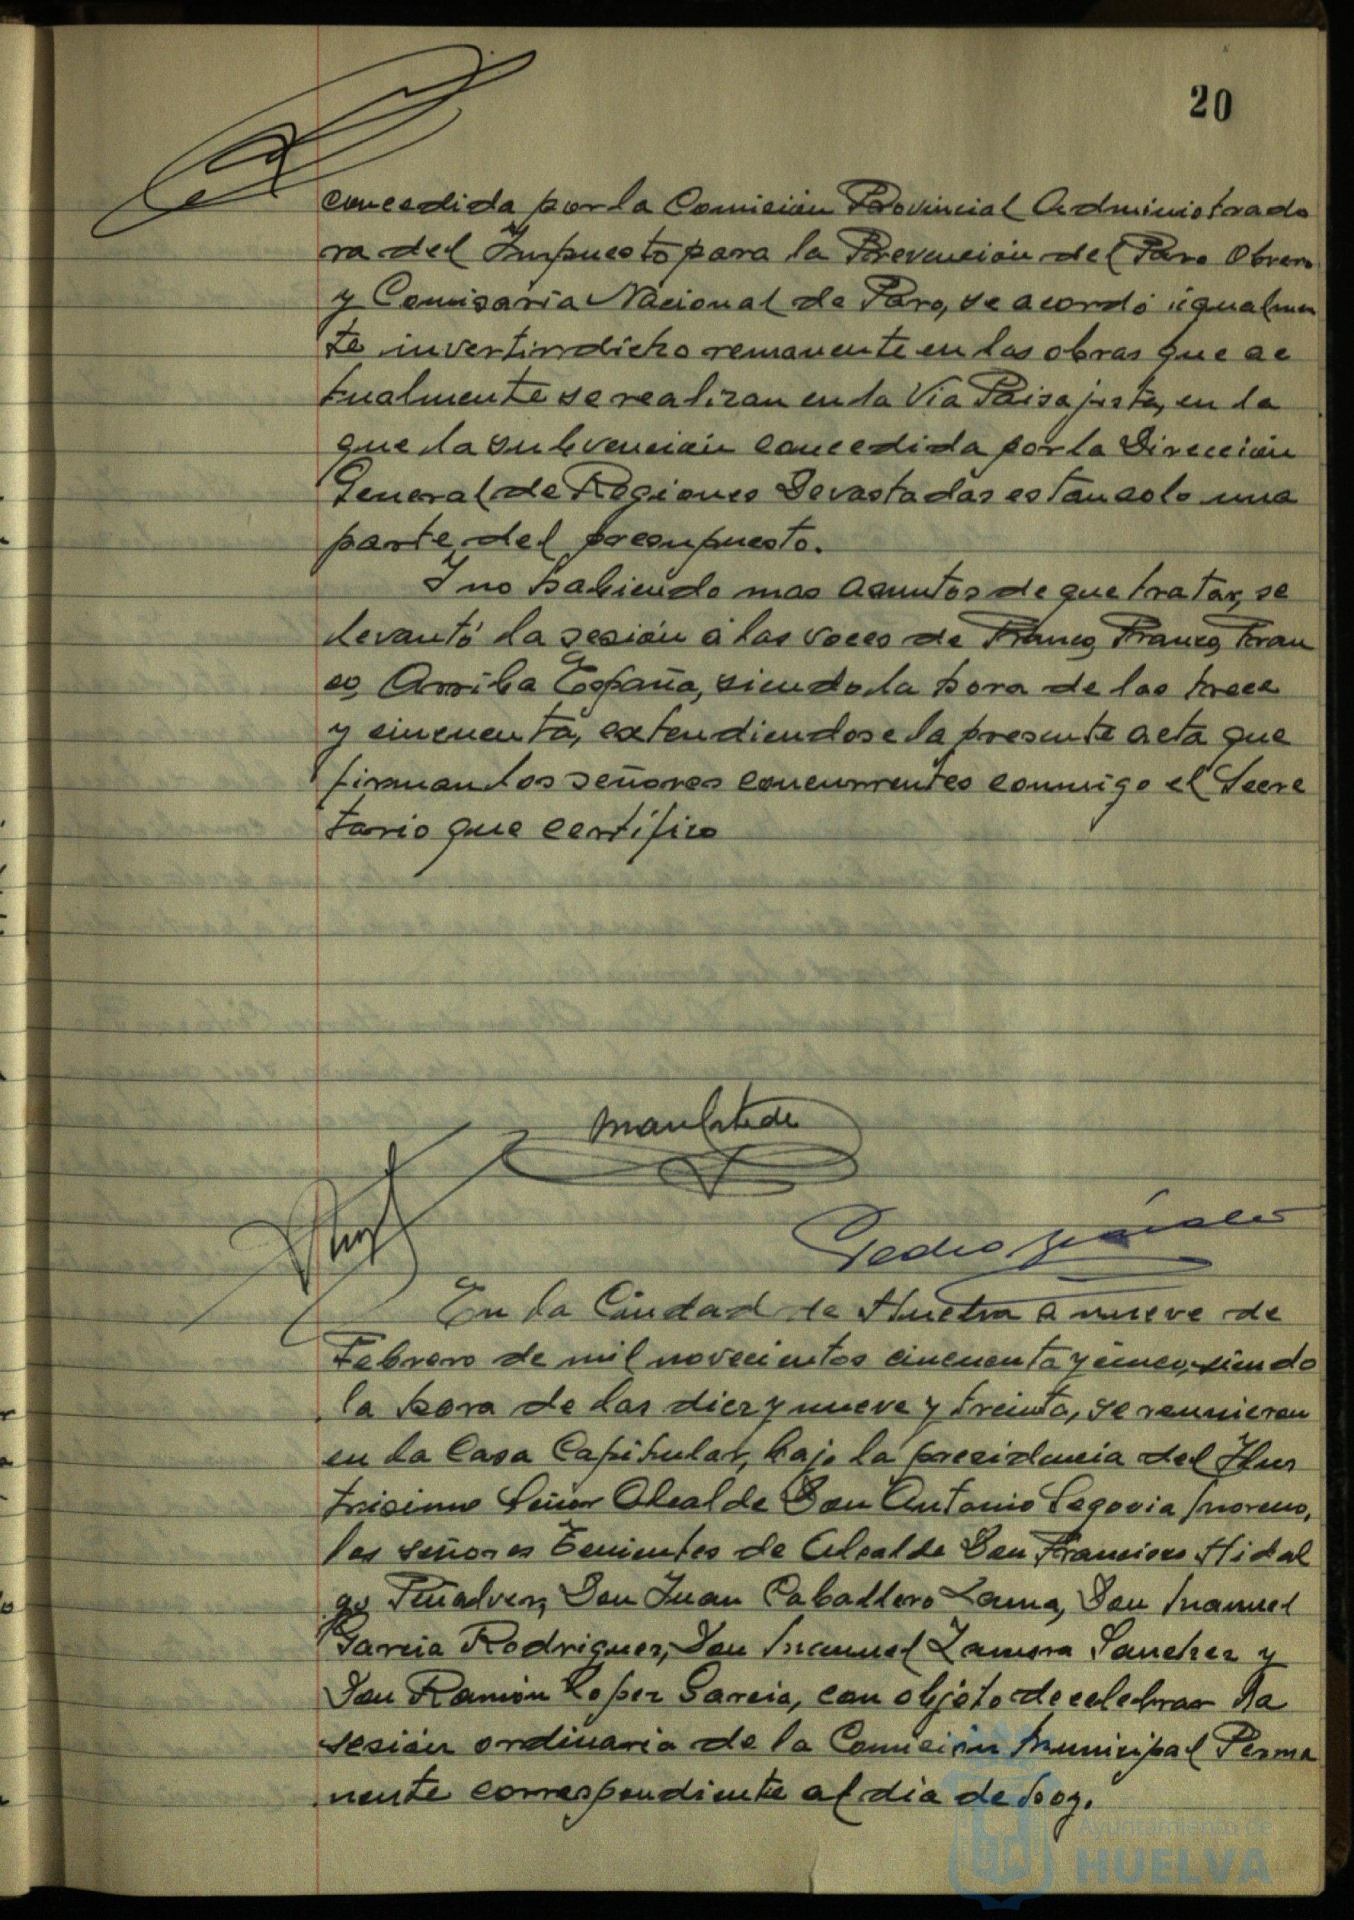 20
concedida por la Comisión Provincial Administrado
ra del Impuesto para la Prevención del Paro Obrero
y Comisaria Nacional de Paro, se acordó igualmen
te invertir dicho remanente en las obras que ac
tualmente se realizan en la Via Paisajista, en la
que la subvención concedida por la Dirección
General de Regiones Devastadas es tan solo una
parte del presupuesto.
Y no habiendo mas asuntos de que tratar, se
levantó la sesión a las voces de Franco, Franco, Fran
co, Arriba España, siendo la hora de las trece
y cincuenta, extendiendose la presente acta que
firman los señores concurrentes conmigo el Secre
tario que certifico
Pedro
En la Ciudad de Huelva a nueve de
Febrero de mil novecientos cincuenta y cinco, siendo
la hora de las diez y nueve y treinta, se reunieron
en la Casa Capitular, bajo la presidencia del Ilus
trisimo Señor Alcalde Don Antonio Segovia Moreno,
los señores Tenientes de Alcalde Don Francisco Hidal
go Peñalver, Don Juan Caballero Lama, Don Manuel
Garcia Rodriguez, Don Manuel Zamora Sanchez y
Don Ramón Lopez Garcia, con objeto de celebrar la
sesión ordinaria de la Comisión Municipal Perma
nente correspondiente al dia de hoy.
Ayuntamiento de
HUELVA